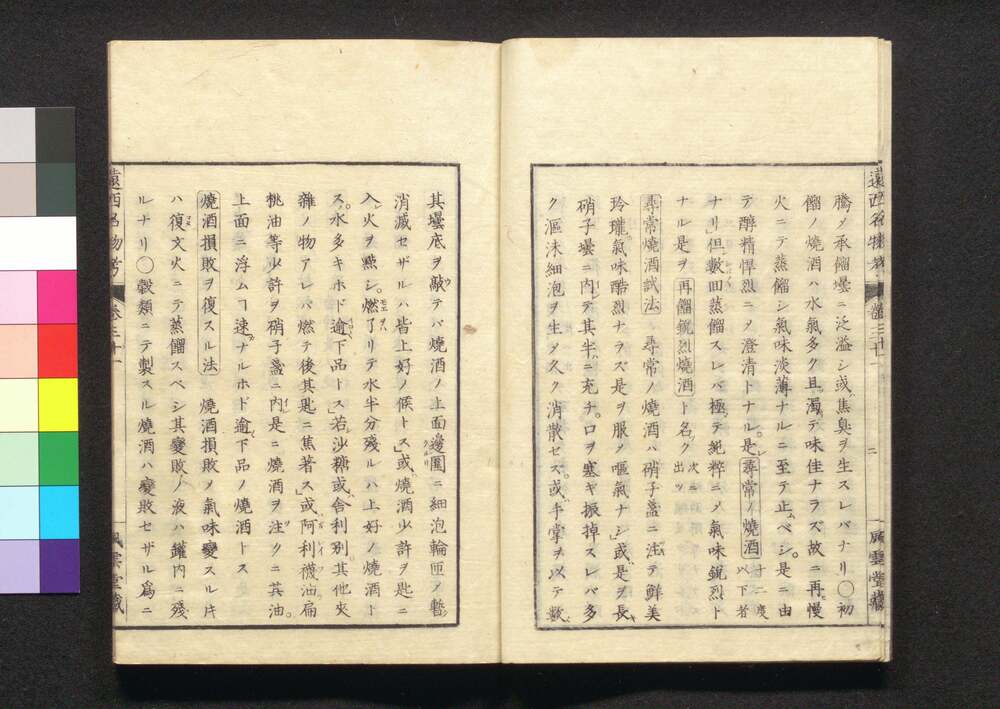 遠西名物考
卷三十一
二
風雲堂藏
騰ノ承餾壜ニ泛溢シ或ハ焦臭ヲ生スレバナリ〇初
餾ノ燒酒ハ水氣多ク且ツ濁テ味佳ナラズ故ニ再ヒ慢
火ニテ蒸餾シ氣味淡薄ナルニ至テ止ムベシ。是ニ由
テ醇精悍烈ニメ澄清トナル。是レ尋常ノ燒酒十二度以下者
ナリ」但數回蒸餾スレバ極テ純粹ニメ氣味銳烈ト
ナル是ヲ再餾銳烈燒酒ト名ク次ニ出ツ
尋常燒酒試法 尋常ノ燒酒ハ硝子盞ニ注テ鮮美
玲瓏氣味酷烈ナラズ是ヲ服ノ嘔氣ナシ」或ハ是ヲ長
硝子壜ニ內レテ其半ニ充チ。口ヲ塞ギ振掉スレバ多
ク漚沫細泡ヲ生ノ久ク消散セズ。或ハ手掌ヲ以テ數
其壜底ヲ敲テバ燒酒ノ上面邊圍ニ細泡輪匝ノ暫
消滅セザルハ皆上好ノ候トス」或ハ燒酒少許ヲ匙ニ
入レ火ヲ點シ。燃了リテ水半分殘ルハ上好ノ燒酒ト
ス。水多キホド逾下品トス」若シ沙糖或ハ舍利別其他夾
雜ノ物アレバ燃テ後其匙ニ焦著ス」或ハ阿利襪油扁
桃油等少許ヲ硝子盞ニ內レ是ニ燒酒ヲ注クニ其油。
上面ニ浮ムヿ速ナルホド逾下品ノ燒酒トス
燒酒損敗ヲ復スル法 燒酒損敗ノ氣味變スル片
ハ復タ文火ニテ蒸餾スベシ其變敗ノ液ハ鑵內ニ殘
ルナリ〇穀類ニテ製スル燒酒ハ變敗セザル爲ニ
遠西名物考
卷三十一
風雲堂藏